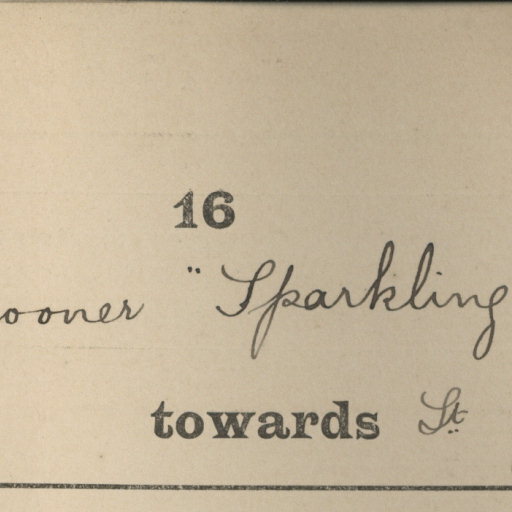 16
ooner " Sparkling
towards St